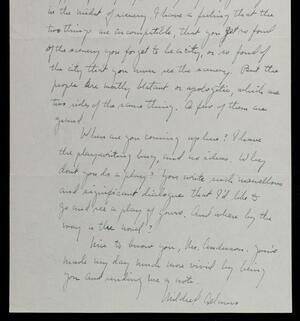 in the midst of scenery I have a feeling that the
two things are incompatible, that you get so fond
of the scenery you forget to be a city, or so fond of
the city that you never see the scenery. But the
people are mostly blatant or apologetic, which are
two sides of the same thing. A few of them are
grand.
When are you coming up here? I have
the playwriting bug, and no ideas. Why
don't you do a play? You write such marvellous
and significant dialogue that I'd like to
go and see a play of yours. And where by the
way is the novel?
Nice to know you, Mr. Anderson. You've
made my day much more vivid by being
you and sending me a note.
Mildred